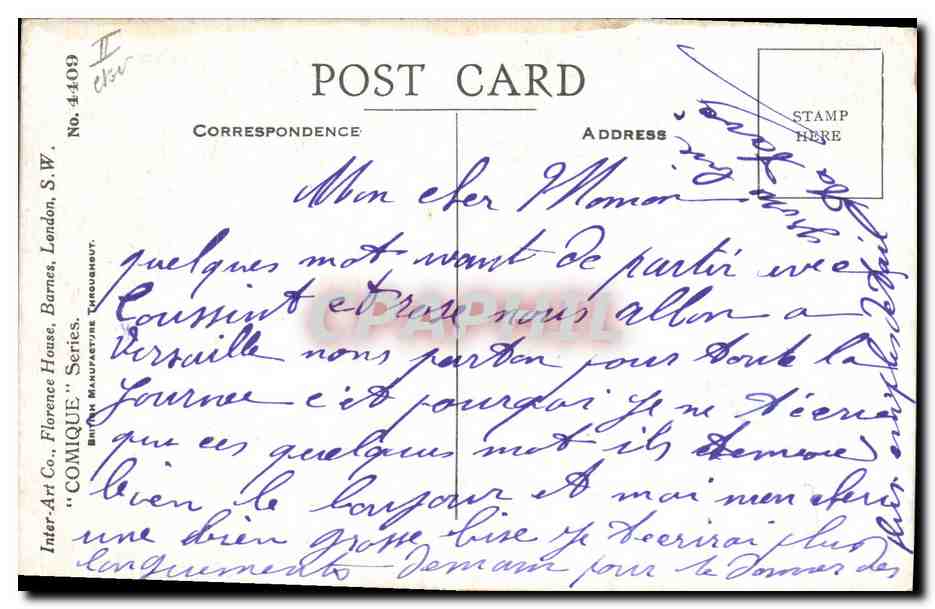 II
POST CARD
CORRESPONDENCE
ADDRESS
STAMP
HERE
No. 4409
Inter-Art Co., Florence House, Barnes, London, S.W.
"COMIQUE" Series.
BRITISH MANUFACTURE THROUGHOUT.
CPAPHIL
Mon cher Momon
quelques mot avant de partir avec
Toussint et rose nous allon a
Versaille nous parton pour toute la
journee c'et pourquoi je ne t'écrie
que ces quelques mot ils
bien le bonjour et moi mon cheri
une bien grosse bise je t'ecrirai plus
longuements demain pour te donner des
plus emples detail
ta